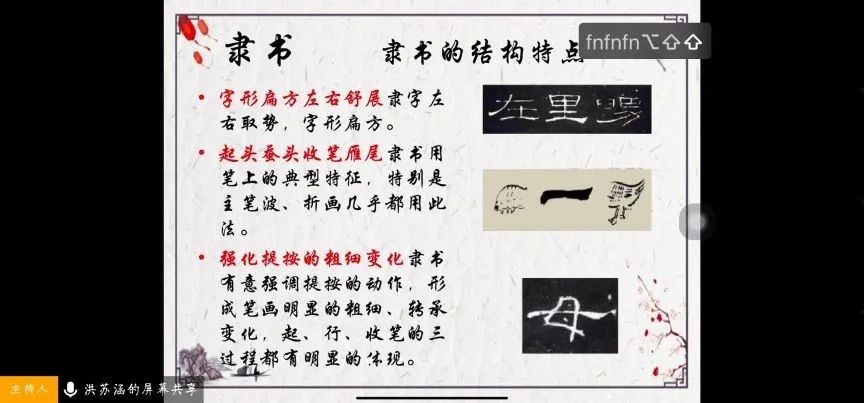 隶书
隶书的结构特点
fnfnfn⌥⇧⇧
• 字形扁方左右舒展隶字左
右取势，字形扁方。
• 起头蚕头收笔雁尾隶书用
笔上的典型特征，特别是
主笔波、折画几乎都用此
法。
• 强化提按的粗细变化隶书
有意强调提按的动作，形
成笔画明显的粗细、转承
变化，起、行、收笔的三
过程都有明显的体现。
在里
一
母
主持人
洪苏涵的屏幕共享